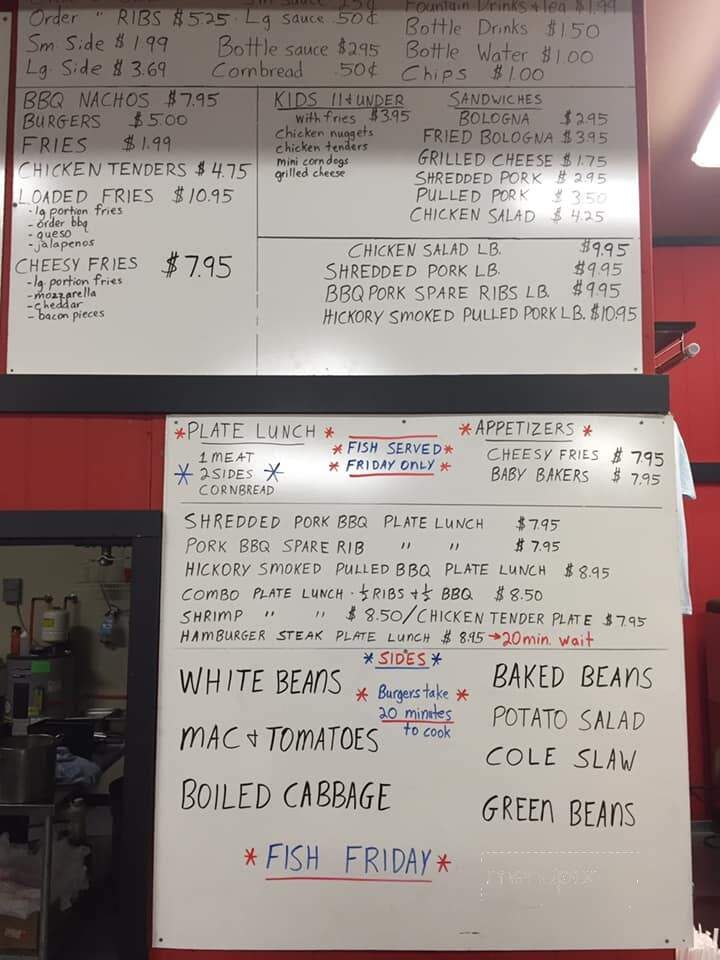 Order " RIBS $5.25
Sm Side $1.99
Lg. Side $3.69
Lg sauce .50¢
Bottle sauce $2.95
Cornbread .50¢
Fountain Drinks & tea $1.99
Bottle Drinks $1.50
Bottle Water $1.00
Chips $1.00
BBQ NACHOS $7.95
BURGERS $5.00
FRIES $1.99
CHICKEN TENDERS $4.75
LOADED FRIES $10.95
- lg portion fries
- order bbq
- queso
- jalapenos
CHEESY FRIES $7.95
- lg portion fries
- mozzarella
- cheddar
- bacon pieces
KIDS 11 & UNDER
with fries $3.95
chicken nuggets
chicken tenders
mini corn dogs
grilled cheese
SANDWICHES
BOLOGNA $2.95
FRIED BOLOGNA $3.95
GRILLED CHEESE $1.75
SHREDDED PORK $2.95
PULLED PORK $3.50
CHICKEN SALAD $4.25
CHICKEN SALAD LB. $9.95
SHREDDED PORK LB. $9.95
BBQ PORK SPARE RIBS LB. $9.95
HICKORY SMOKED PULLED PORK LB. $10.95
*PLATE LUNCH*
1 MEAT
* 2 SIDES *
CORNBREAD
* FISH SERVED *
* FRIDAY ONLY *
* APPETIZERS *
CHEESY FRIES $7.95
BABY BAKERS $7.95
SHREDDED PORK BBQ PLATE LUNCH $7.95
PORK BBQ SPARE RIB " " $7.95
HICKORY SMOKED PULLED BBQ PLATE LUNCH $8.95
COMBO PLATE LUNCH - ½ RIBS + ½ BBQ $8.50
SHRIMP " " $8.50/CHICKEN TENDER PLATE $7.95
HAMBURGER STEAK PLATE LUNCH $8.95 → 20 min. wait
* SIDES *
WHITE BEANS
MAC & TOMATOES
BOILED CABBAGE
* Burgers take *
20 minutes
to cook
BAKED BEANS
POTATO SALAD
COLE SLAW
GREEN BEANS
* FISH FRIDAY *
menupix